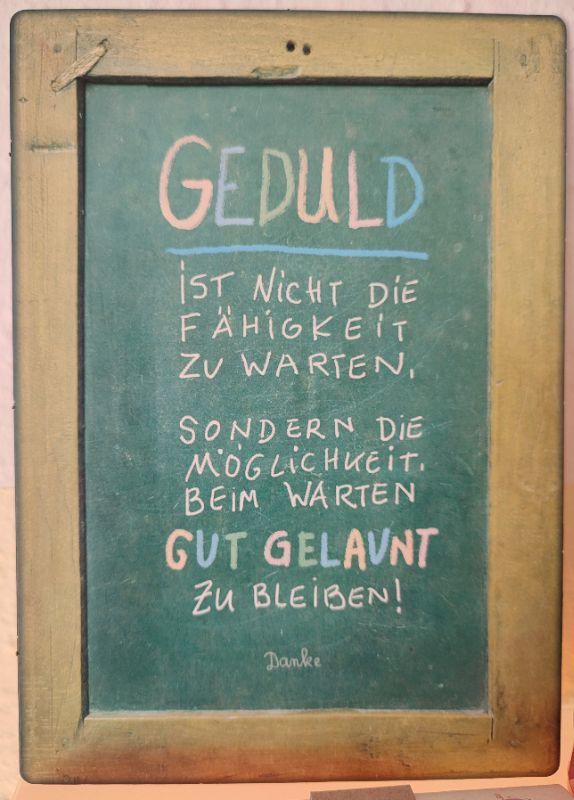 GEDULD
iST NiCHT DiE
FÄHiGKEiT
ZU WARTEN,
SONDERN DiE
MÖGLiCHKEiT,
BEiM WARTEN
GUT GELAUNT
ZU BLEiBEN!
Danke